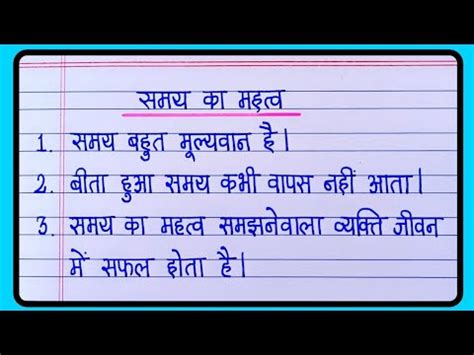 समय का महत्व
1. समय बहुत मूल्यवान है।
2. बीता हुआ समय कभी वापस नहीं आता।
3. समय का महत्व समझनेवाला व्यक्ति जीवन
में सफल होता है।